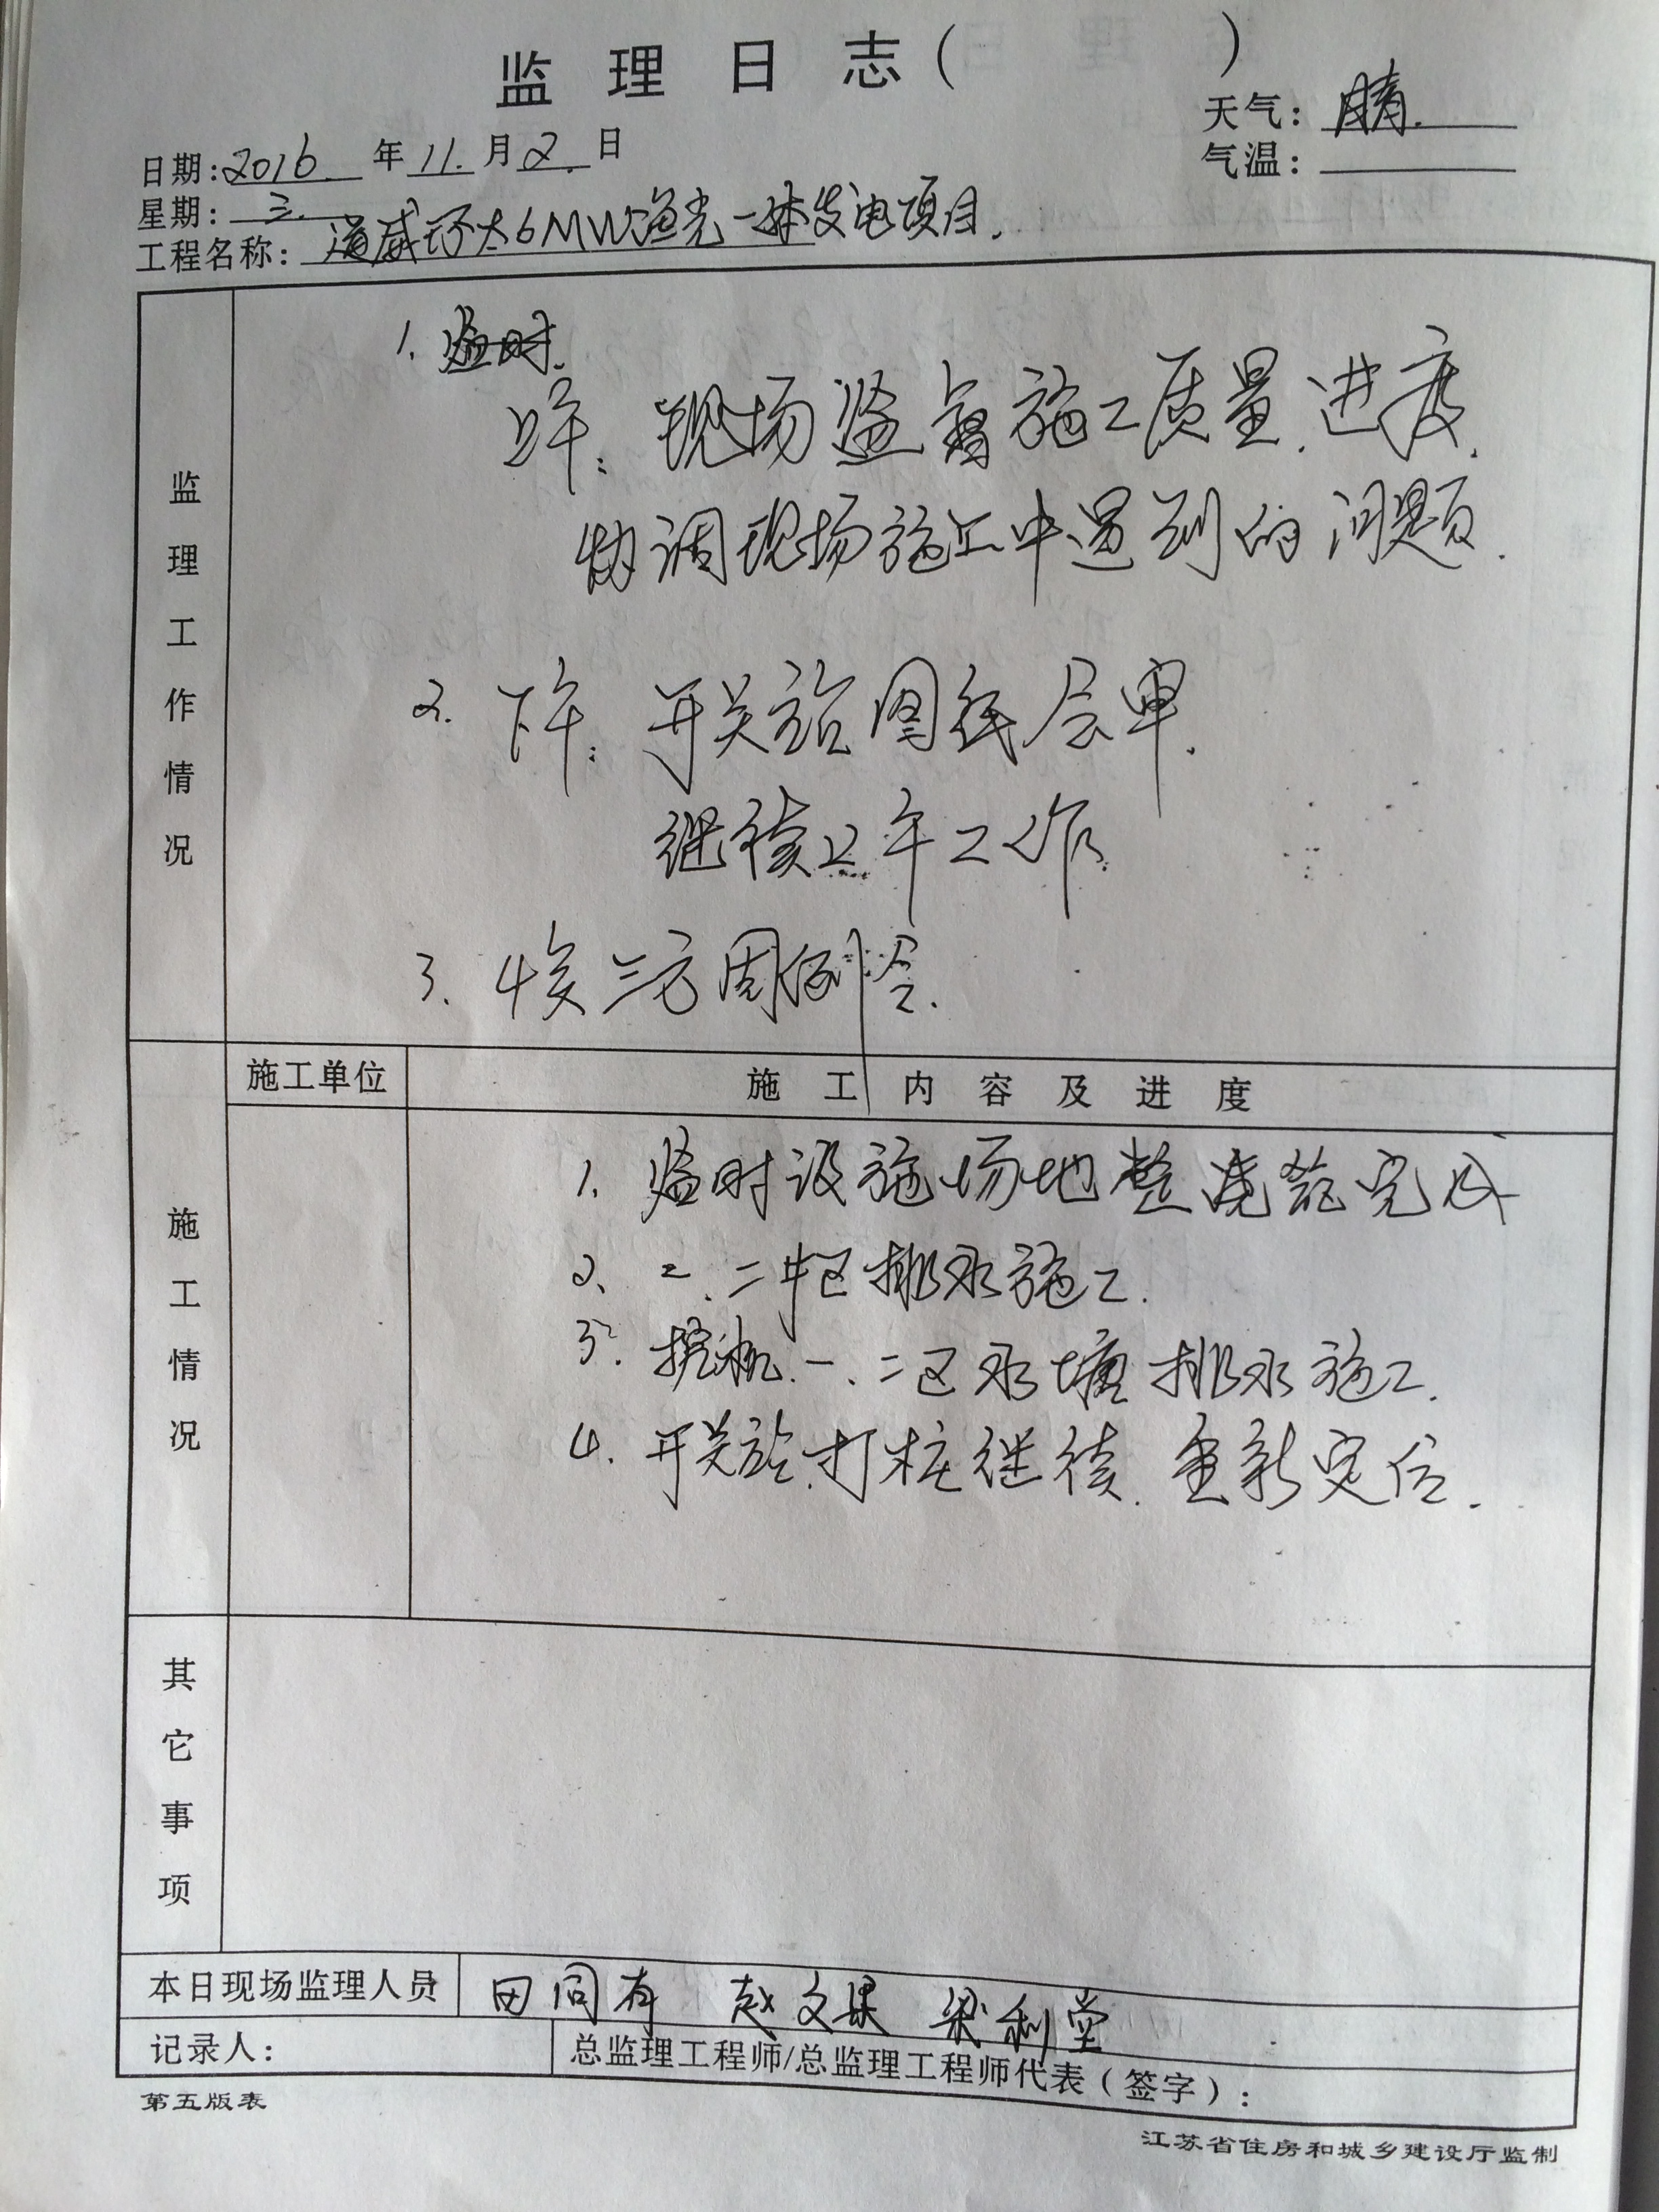 监理日志（ ）
天气：晴.
日期：2016.年11.月2.日
气温：
星期：三.
工程名称：道威环太6MW渔光一体发电项目.
1. 临时.
上午：现场监督施工质量.进度.
协调现场施工中遇到的问题.
2. 下午：开关站图纸会审.
继续上午工作.
3. 4点三方周例会.
监理工作情况
施工单位
施工内容及进度
1. 临时设施场地整浇砼完成
2. 一.二中区排水施工.
3. 挖机.一.二区水塘排水施工.
4. 开关站.打桩继续.重新定位.
施工情况
其它事项
本日现场监理人员 田同有 赵文 梁利堂
记录人：
总监理工程师/总监理工程师代表（签字）：
第五版表
江苏省住房和城乡建设厅监制